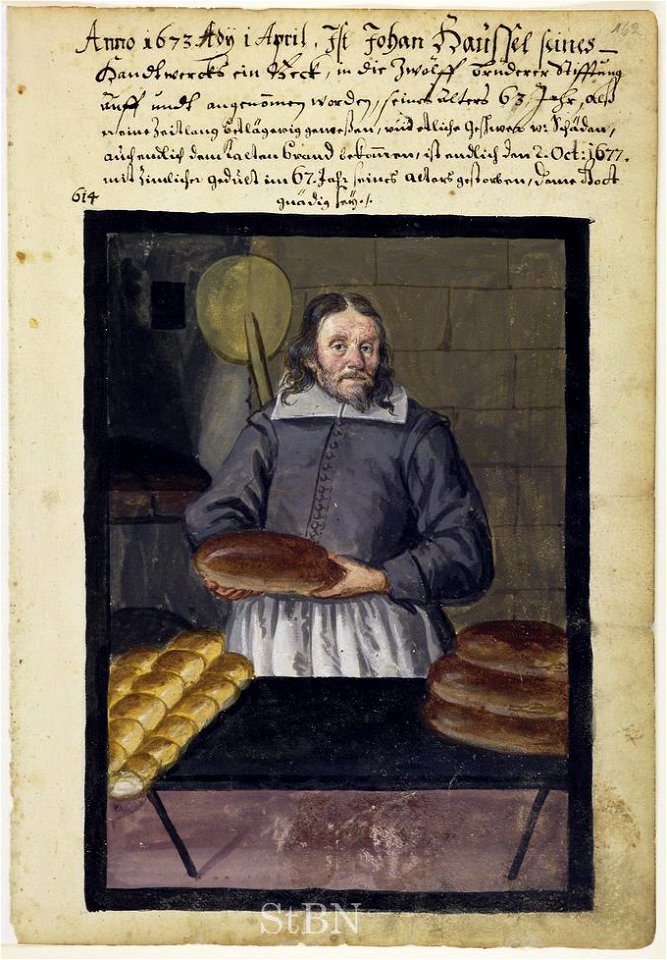 162
Anno 1673 Ady 1 April, Ist Johan Haüssel seines
Handtwercks ein Beck, in die Zwölff Brüderer Stifftung
auff undt angenommen worden, seines alters 63 Jahr, Alß
er eine Zeitlang betlägerig geweßen, und etliche Gesch
auch endlich dem Kalten Brand bekommen, ist endlich den 2. Oct: 1677.
mit zimlicher gedult im 67. Jahr seines alters gestorben, deme Gott
614 gnädig seye.
StBN